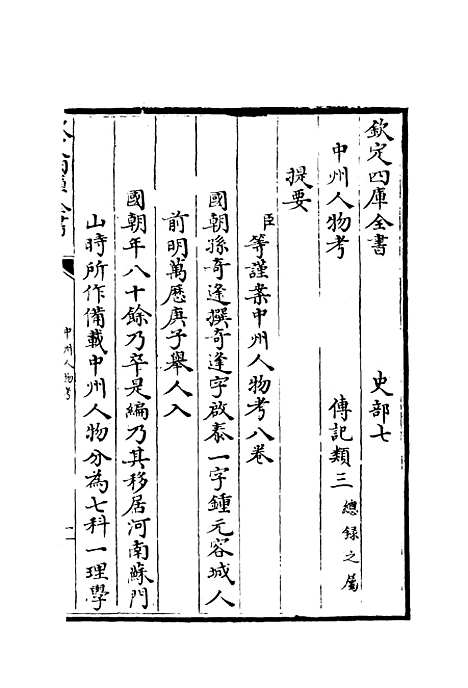 欽定四庫全書　史部七
中州人物考　傳記類三總錄之屬
提要
臣等謹案中州人物考八卷
國朝孫奇逢撰奇逢字啟泰一字鍾元容城人
前明萬歷庚子舉人入
國朝年八十餘乃卒是編乃其移居河南蘇門
山時所作備載中州人物分為七科一理學
中州人物考